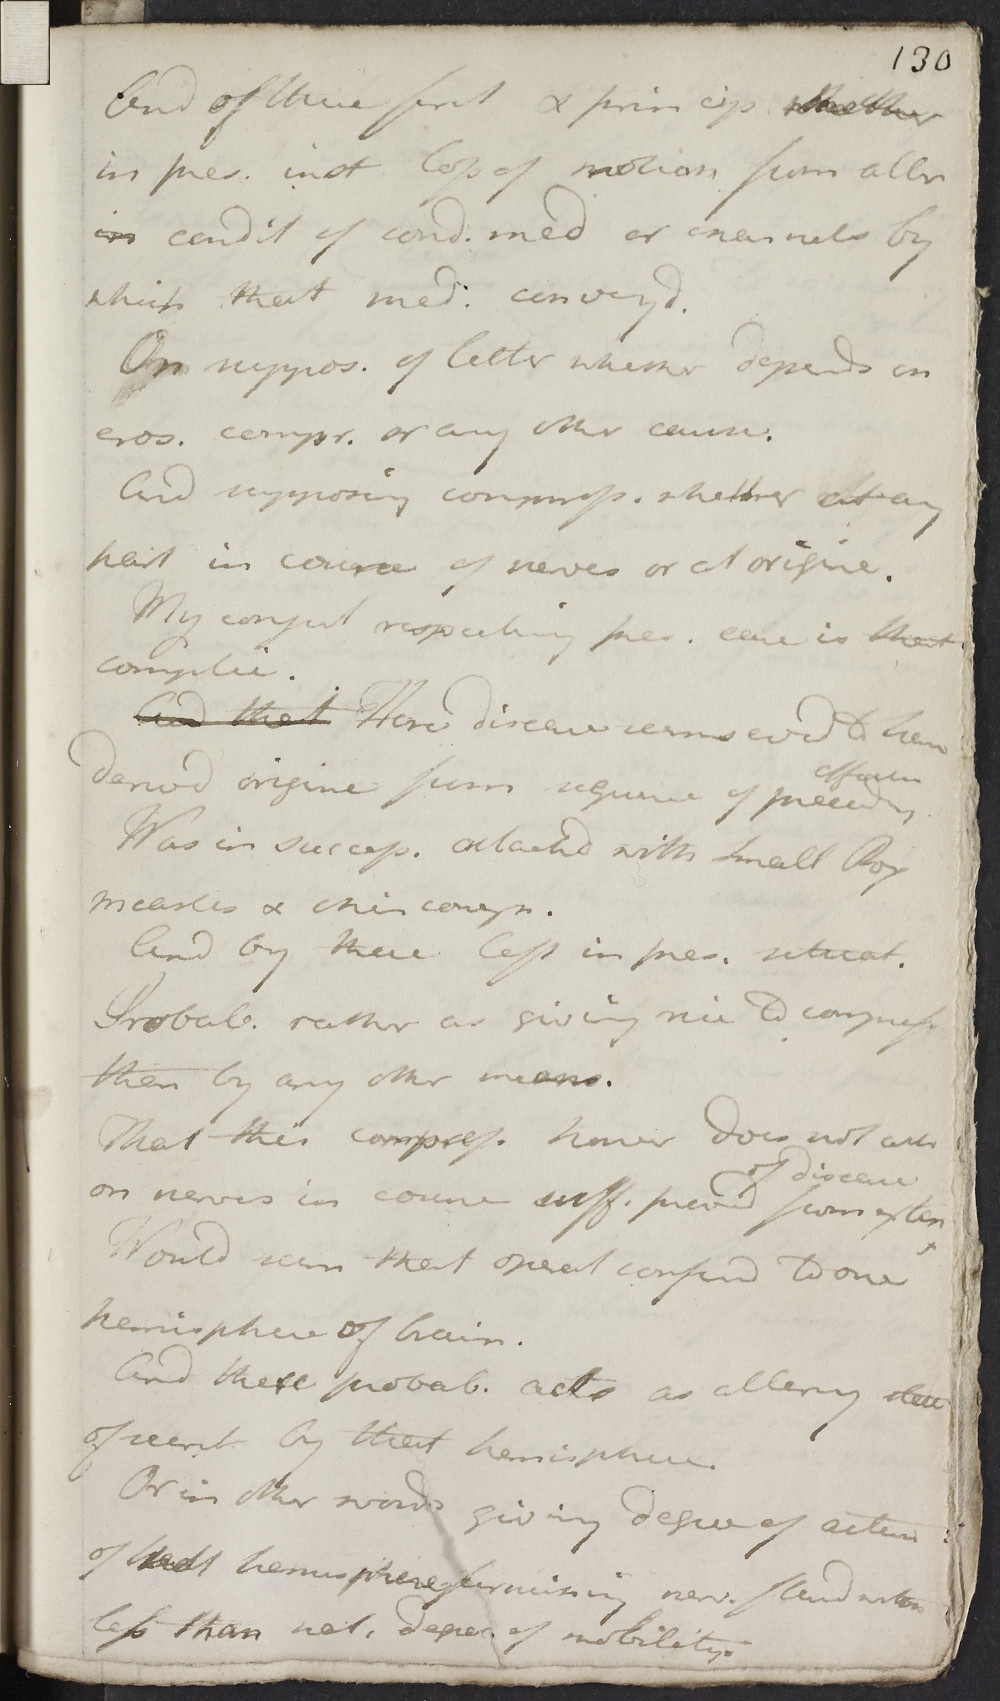 130
And of these first & princip. whether
in pres. inst loss of motion from alter
in condit of cond. med or channels by
which that med. convey'd.
On suppos. of latter whether depends on
eros. compr. or any other cause.
And supposing compress. whether at any
part in course of nerves or at origine.
My conject respecting pres. case is that
complic.
And that Here disease seems evid to have
deriv'd origine from sequence of preceding
affection
Was in success. attack'd with Small Pox
measles & chincough.
And by these left in pres. situat.
Probab. rather as giving rise to compress
than by any other means.
That this compress. howev does not act
on nerves in course suff. prov'd from exten
of disease
Would seem that operat confin'd to one
hemisphere of brain.
And there probab. acts as altering state
of secret by that hemisphere.
Or in other words giving degree of action
of that hemisphere furnishing nerv. fluid with
less than nat. degree of mobility.